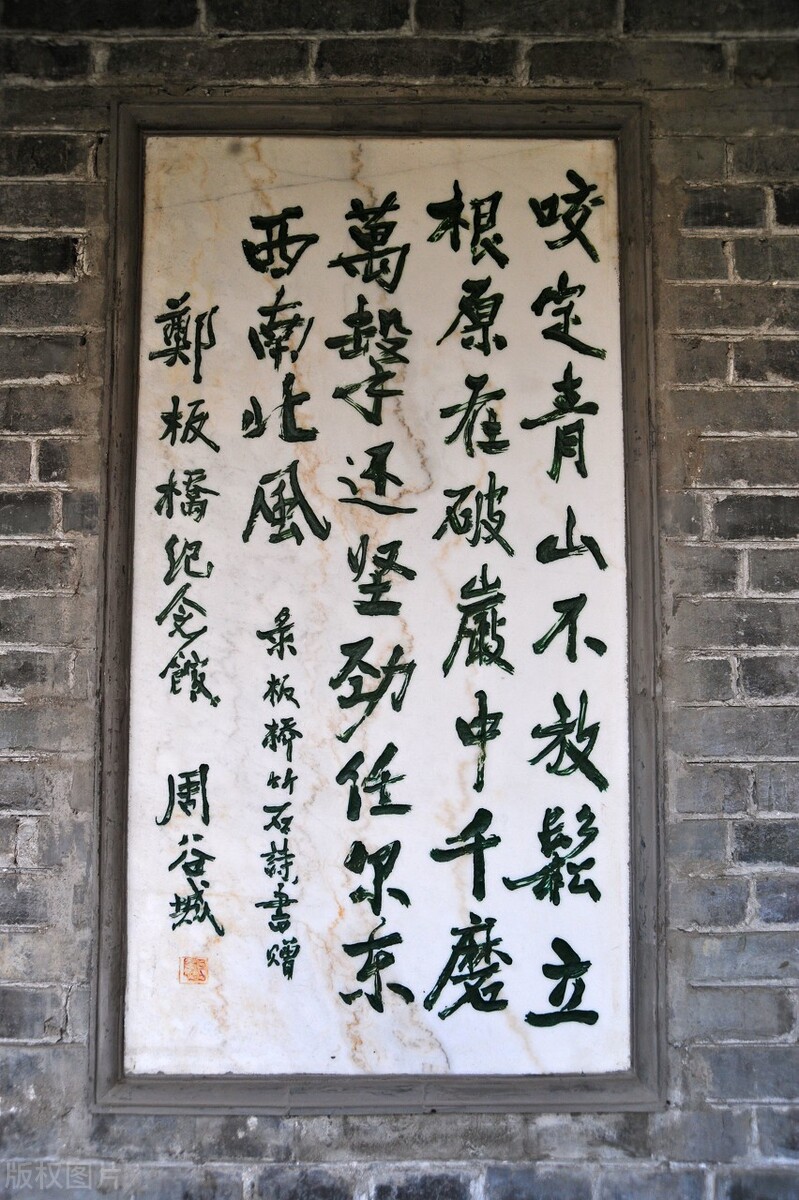 咬定青山不放鬆立
根原在破巖中千磨
萬擊还坚劲任尔东
西南北風
录板桥竹石詩書赠
鄭板橋纪念館 周谷城
版权图片